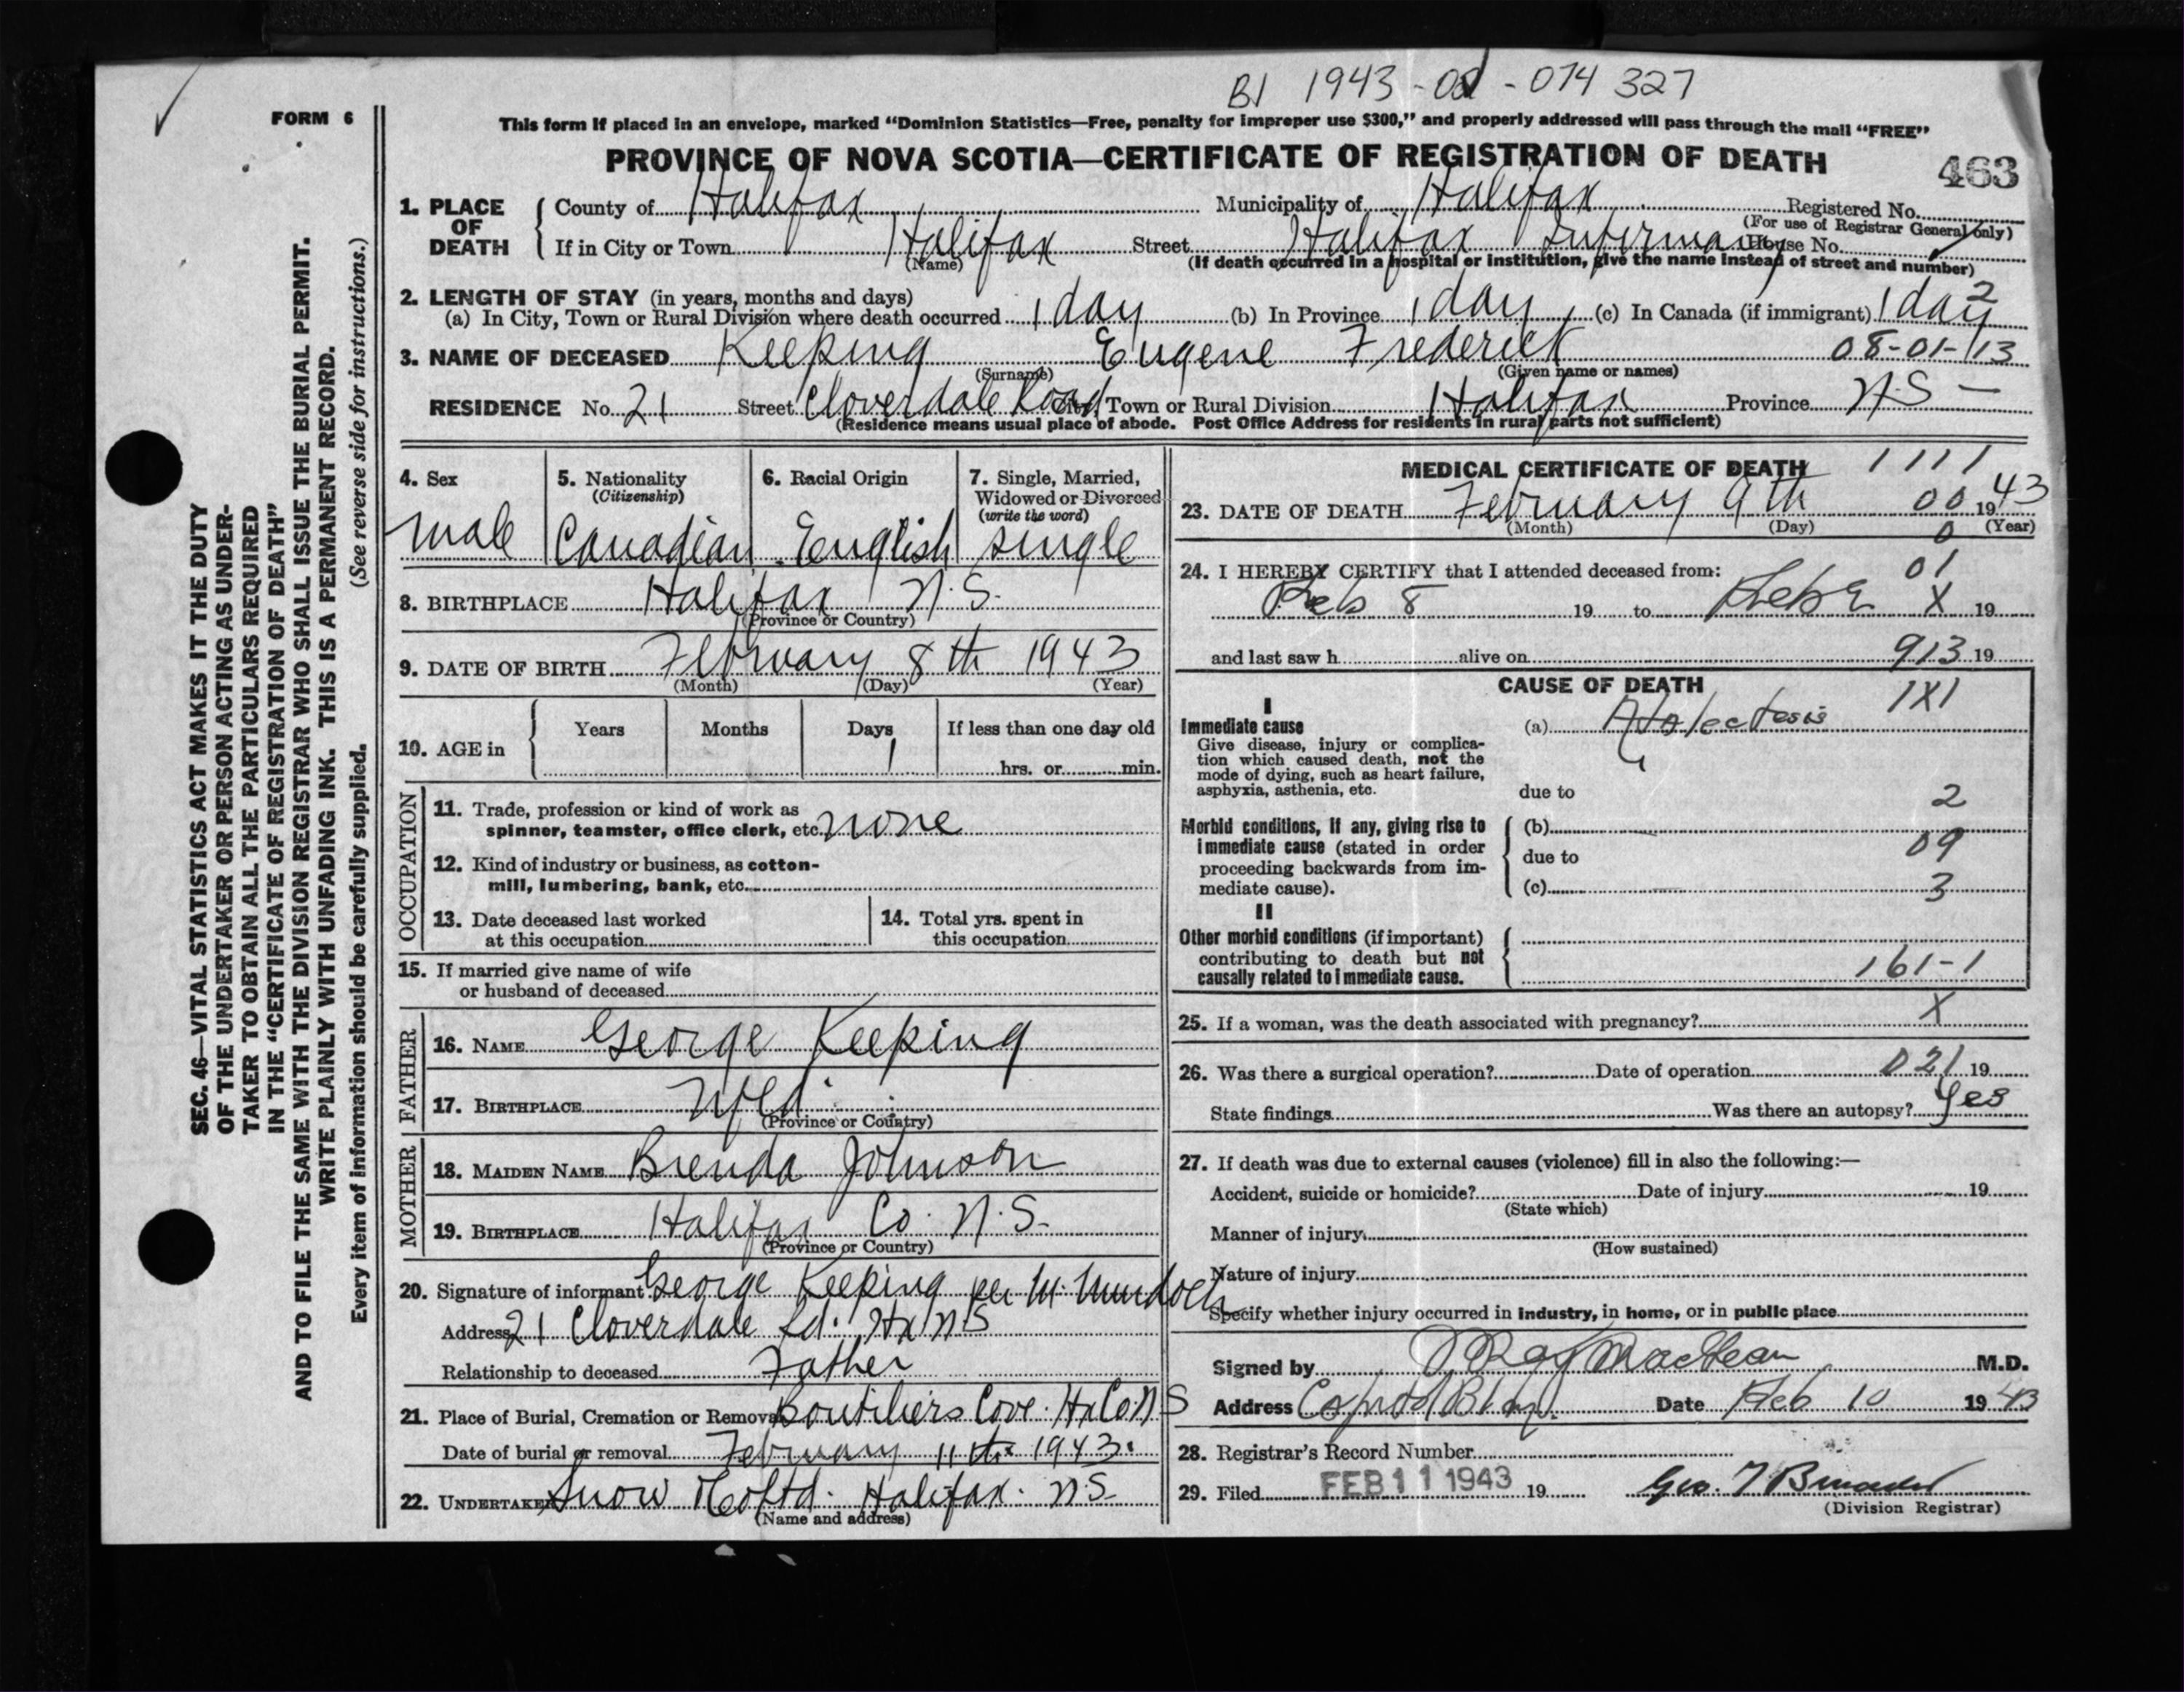 B1 1943-02-074 327
FORM 6
This form if placed in an envelope, marked "Dominion Statistics—Free, penalty for improper use $300," and properly addressed will pass through the mail "FREE"
PROVINCE OF NOVA SCOTIA—CERTIFICATE OF REGISTRATION OF DEATH
463
1. PLACE OF DEATH County of Halifax Municipality of Halifax Registered No.
(For use of Registrar General only)
If in City or Town Halifax Street Halifax Infirmary House No.
(Name) (If death occurred in a hospital or institution, give the name instead of street and number)
2. LENGTH OF STAY (in years, months and days) 2
(a) In City, Town or Rural Division where death occurred 1 day (b) In Province 1 day (c) In Canada (if immigrant) 1 day
3. NAME OF DECEASED Keeping Eugene Frederick 08-01-13
(Surname) (Given name or names)
RESIDENCE No. 21 Street Cloverdale Road City, Town or Rural Division Halifax Province N.S —
(Residence means usual place of abode. Post Office Address for residents in rural parts not sufficient)
4. Sex
male
5. Nationality
(Citizenship)
Canadian
6. Racial Origin
English
7. Single, Married,
Widowed or Divorced
(write the word)
single
8. BIRTHPLACE Halifax N.S.
(Province or Country)
9. DATE OF BIRTH February 8th 1943
(Month) (Day) (Year)
10. AGE in Years Months Days If less than one day old
1 hrs. or min.
OCCUPATION
11. Trade, profession or kind of work as
spinner, teamster, office clerk, etc. none
12. Kind of industry or business, as cotton-
mill, lumbering, bank, etc.
13. Date deceased last worked
at this occupation
14. Total yrs. spent in
this occupation
15. If married give name of wife
or husband of deceased
FATHER
16. NAME George Keeping
17. BIRTHPLACE Nfld.
(Province or Country)
MOTHER
18. MAIDEN NAME Brenda Johnson
19. BIRTHPLACE Halifax Co. N.S.
(Province or Country)
20. Signature of informant George Keeping per M. Murdoch
Address 21 Cloverdale Rd. Hx NS
Relationship to deceased Father
21. Place of Burial, Cremation or Removal Boutiliers Cove. Hx Co NS
Date of burial or removal February 11th 1943.
22. UNDERTAKER Snow & Co Ltd. Halifax. N.S
(Name and address)
MEDICAL CERTIFICATE OF DEATH 1111
23. DATE OF DEATH February 9th 00 1943
(Month) (Day) (Year)
0
24. I HEREBY CERTIFY that I attended deceased from: 01
Feb 8 19 to Feb 9 X 19
and last saw h alive on 913 19
CAUSE OF DEATH
1X1
I
Immediate cause (a) Atalectesis
Give disease, injury or complica-
tion which caused death, not the
mode of dying, such as heart failure,
asphyxia, asthenia, etc.
due to 2
Morbid conditions, if any, giving rise to
immediate cause (stated in order
proceeding backwards from im-
mediate cause).
(b)
due to 09
(c) 3
II
Other morbid conditions (if important)
contributing to death but not
causally related to immediate cause.
161-1
25. If a woman, was the death associated with pregnancy? X
26. Was there a surgical operation? Date of operation 021 19
State findings Was there an autopsy? Yes
27. If death was due to external causes (violence) fill in also the following:—
Accident, suicide or homicide? Date of injury 19
(State which)
Manner of injury
(How sustained)
Nature of injury
Specify whether injury occurred in industry, in home, or in public place
Signed by J Ray MacLean M.D.
Address Capitol Bldg. Date Feb 10 1943
28. Registrar's Record Number
29. Filed FEB 11 1943 19 Geo. T
(Division Registrar)
SEC. 46—VITAL STATISTICS ACT MAKES IT THE DUTY
OF THE UNDERTAKER OR PERSON ACTING AS UNDER-
TAKER TO OBTAIN ALL THE PARTICULARS REQUIRED
IN THE "CERTIFICATE OF REGISTRATION OF DEATH"
AND TO FILE THE SAME WITH THE DIVISION REGISTRAR WHO SHALL ISSUE THE BURIAL PERMIT.
WRITE PLAINLY WITH UNFADING INK. THIS IS A PERMANENT RECORD.
Every item of information should be carefully supplied. (See reverse side for instructions.)